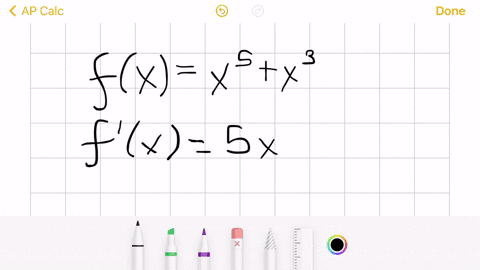 AP Calc
Done
f(x) = x⁵ + x³
f'(x) = 5x